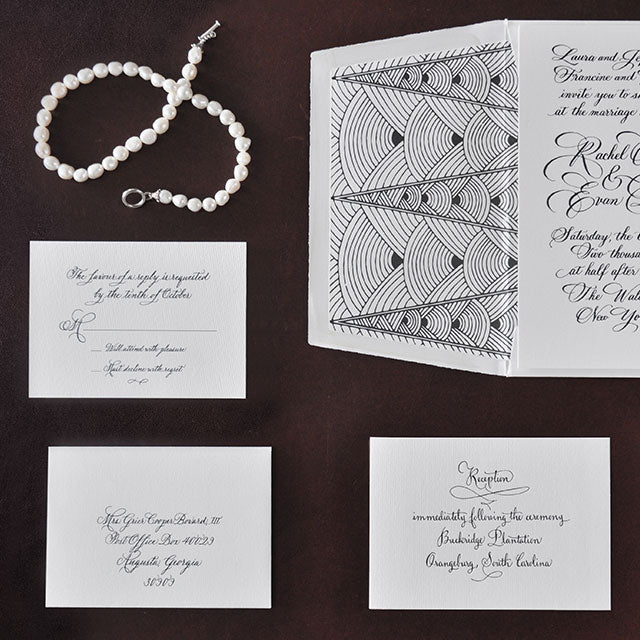 Laura and
Francine and
invite you to
at the marriage
Rachel
&
Evan
Saturday, the
Two thousand
at half after
The
New
The favour of a reply is requested
by the tenth of October
M
Will attend with pleasure
Must decline with regret
Mrs. Grier Cooper
III
Post Office Box 40023
Augusta, Georgia
30909
Reception
immediately following the ceremony
Buckridge Plantation
Orangeburg, South Carolina